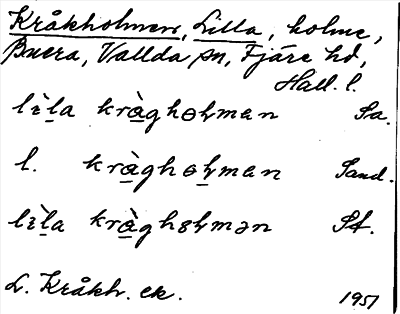 Kråkholmen, Lilla, holme,
Buera, Vallda sn, Fjäre hd,
Hall. l.
lìla kràgholman Sa.
l. kràgholman Sand.
lìla kràgholmən St.
L. Kråkh. ek.
1951